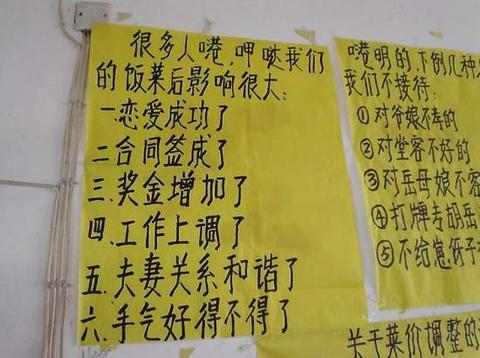 很多人嗯,呷哒我们
的饭菜后影响很大:
一恋爱成功了
二合同签成了
三.奖金增加了
四.工作上调了
五.夫妻关系和谐了
六.手气好得不得了
明的.下例几种
我们不接待:
①对爷娘不孝的
②对堂客不好的
③对岳母娘不客
④打牌专胡岳
⑤不给崽伢子
关于菜价调整的